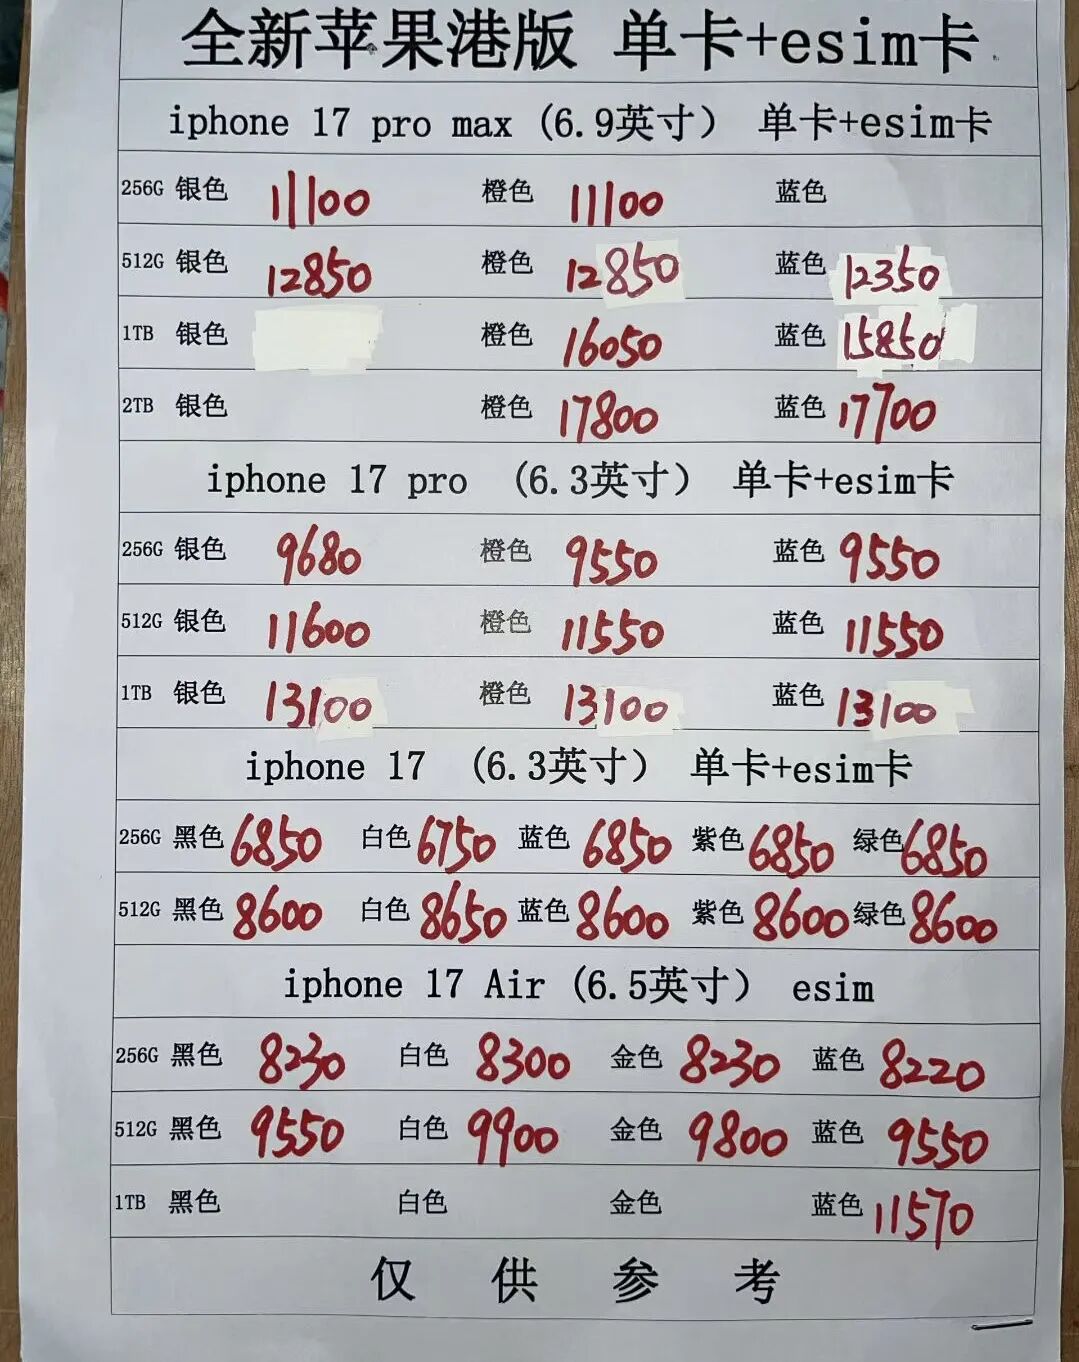 全新苹果港版 单卡+esim卡
iphone 17 pro max (6.9英寸) 单卡+esim卡
256G 银色 11100 橙色 11100 蓝色
512G 银色 12850 橙色 12850 蓝色 12350
1TB 银色 橙色 16050 蓝色 15850
2TB 银色 橙色 17800 蓝色 17700
iphone 17 pro (6.3英寸) 单卡+esim卡
256G 银色 9680 橙色 9550 蓝色 9550
512G 银色 11600 橙色 11550 蓝色 11550
1TB 银色 13100 橙色 13100 蓝色 13100
iphone 17 (6.3英寸) 单卡+esim卡
256G 黑色 6850 白色 6750 蓝色 6850 紫色 6850 绿色 6850
512G 黑色 8600 白色 8650 蓝色 8600 紫色 8600 绿色 8600
iphone 17 Air (6.5英寸) esim
256G 黑色 8230 白色 8300 金色 8230 蓝色 8220
512G 黑色 9550 白色 9900 金色 9800 蓝色 9550
1TB 黑色 白色 金色 蓝色 11570
仅供参考